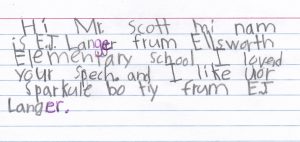 Hi Mr. Scott mi nam
is E.J. Langer frum Ellsworth
Elementary school I loved
your spech. and I like yor
Sparkule bo ty frum EJ
Langer.